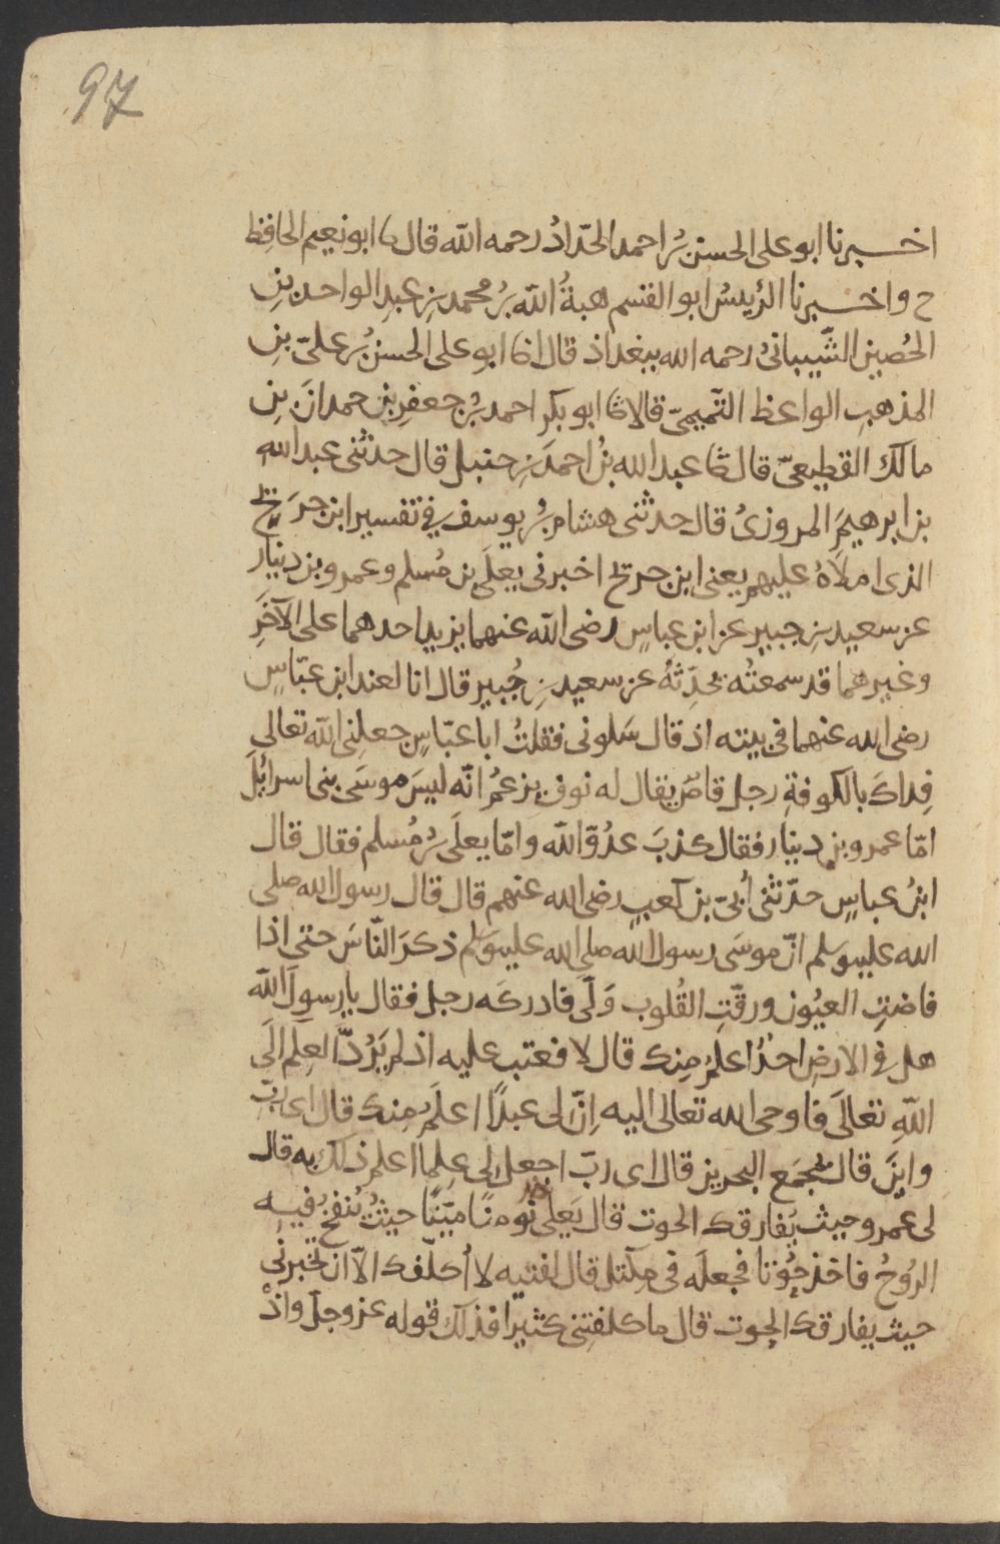 97
اخبرنا ابو على الحسن بن احمد الحدّادُ رحمه الله قال ثا ابو نعيم الحافظ
ح واخبرنا الرئيسُ ابو القسم هبةُ الله بنُ محمد بنِ عبدِ الواحد بنِ
الحُصينِ الشَّيبانىُّ رحمه الله ببغداذ قال انا ابو على الحسنُ بنُ علىّ بنِ
المذهبِ الواعظ التّميمىّ قالا ثا ابو بكرٍ احمد بنُ جعفرِ بنِ حمدانَ بنِ
مالك القطيعىّ قال ثا عبد الله بنُ احمدَ بنِ حنبل قال حدثنى عبد الله
بن ابرهيمَ المروزىُّ قال حدثنى هشام بنُ يوسف فى تفسير ابن جريج
الذى املاهُ عليهم يعنى ابن جريج اخبرنى يعلَى بن مُسلم وعمرو بن دينار
عن سعيد بنِ جبير عن ابن عباسٍ رضى الله عنهما يزيد احدهما على الآخَرِ
وغيرهما قد سمعتُه يُحَدِّثهُ عن سعيد بنِ جُبير قال انا لعند ابن عبّاسٍ
رضى الله عنهما فى بيته اذ قال سَلونى فقلتُ ابا عبّاسٍ جعلنى الله تعالى
فِداكَ بالكوفةِ رجل قاصّ يقال له نوف يزعمُ انّه ليسَ موسَى بنى اسرائلَ
امّا عمرو بن دينار فقال كذبَ عدُوّ الله وامّا يعلَى بنُ مُسلم فقال قال
ابنُ عباسٍ حدّثنى أُبىّ بن كعبٍ رضى الله عنهم قال قال رسول الله صلى
الله عليه وسلم انّ موسَى رسول الله صلى الله عليه وسلم ذكرَ النّاسَ حتى اذا
فاضتِ العيُون ورقّتِ القُلوب وَلّى فادركَه رجل فقال يا رسولَ الله
هل فى الارضِ احدٌ اعلمُ مِنك قال لا فعتب عليه اذ لم يَرُدَّ العِلم الَى
اللهِ تعالَى فاوحى الله تعالى اليه اِنّ لى عبدًا اعلَمُ مِنك قال اى ربّ
واينَ قال بمَجمَع البحرين قال اى ربّ اجعل لى عِلمًا اعلم ذلك به قال
لى عمرو حيث يُفارقك الحوت قال يَعلى نُونًا ميّتًا حيثُ يُنفخُ فيه
الرُوحُ فاخذ حُوتًا فجعلَه فى مِكتل قال لفتيه لا أُكلّفك الّا ان تخبرنى
حيث يفارقك الحوت قال ما كلفتنى كثيرا فذلك قوله عز وجل واذْ